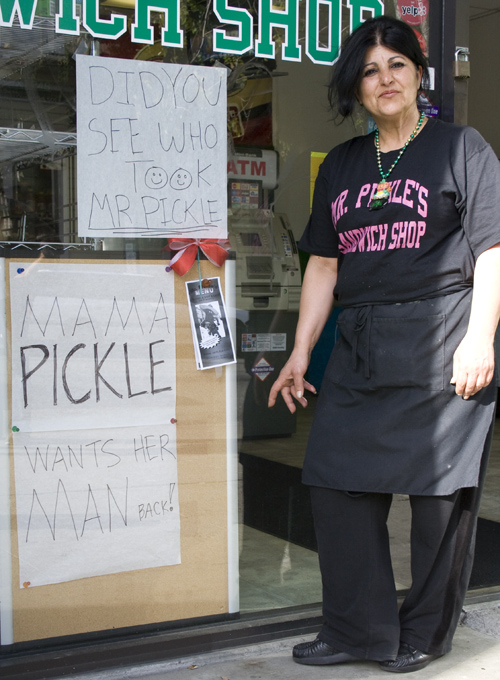 WICH SHOP
yelp
DID YOU
SEE WHO
TOOK
MR PICKLE
ATM
MENU
MAMA
PICKLE
WANTS HER
MAN BACK!
MR. PICKLE'S
SANDWICH SHOP